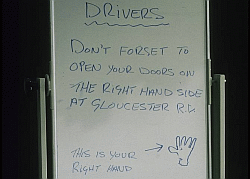 DRIVERS
DON'T FORGET TO
OPEN YOUR DOORS ON
THE RIGHT HAND SIDE
AT GLOUCESTER RD.
THIS IS YOUR
RIGHT HAND